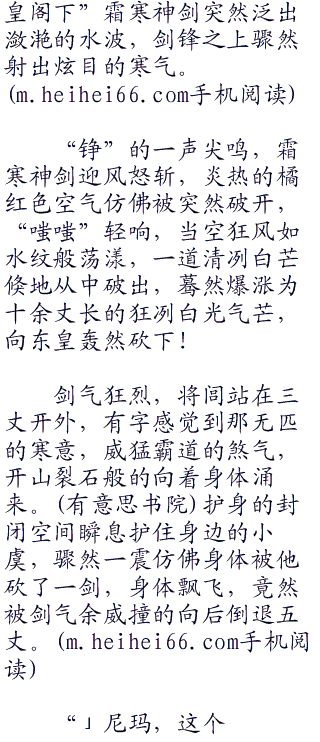 皇阁下”霜寒神剑突然泛出
潋滟的水波，剑锋之上骤然
射出炫目的寒气。
(m.heihei66.com手机阅读)
“铮”的一声尖鸣，霜
寒神剑迎风怒斩，炎热的橘
红色空气仿佛被突然破开，
“嗤嗤”轻响，当空狂风如
水纹般荡漾，一道清冽白芒
倏地从中破出，蓦然爆涨为
十余丈长的狂冽白光气芒，
向东皇轰然砍下！
剑气狂烈，将闾站在三
丈开外，有字感觉到那无匹
的寒意，威猛霸道的煞气，
开山裂石般的向着身体涌
来。(有意思书院)护身的封
闭空间瞬息护住身边的小
虞，骤然一震仿佛身体被他
砍了一剑，身体飘飞，竟然
被剑气余威撞的向后倒退五
丈。(m.heihei66.com手机阅
读)
“」尼玛，这个